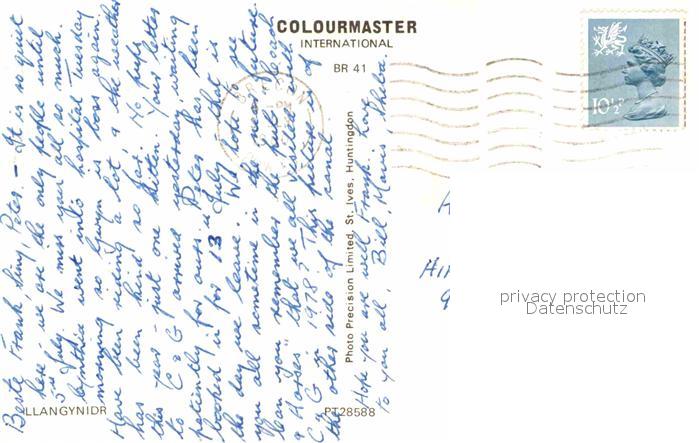 COLOURMASTER
INTERNATIONAL
BR 41
10½P
Frank, Amy, Peter. - It is so quiet
here - we are the only people until
July. We miss you all so much.
Cynthia went into hospital Tuesday
morning so Glynn is boss again.
Have been riding a lot, & the weather
has been kind so far. No pups
this year - just one kitten. Your letter
to C & G arrived yesterday. Waiting
patiently for ours. Peter has been
booked in for 13 July & that is
the day we leave. We hope to see
you all sometime in the near future.
Can you remember the pub "Coach
& Horses" that we all visited with
C & G in 1978? This picture is of
the other side of the canal.
Hope you are well Frank, love
to you all, Bill, Mavis, Sheba.
Photo Precision Limited, St. Ives, Huntingdon
LLANGYNIDR
PT28588
privacy protection
Datenschutz